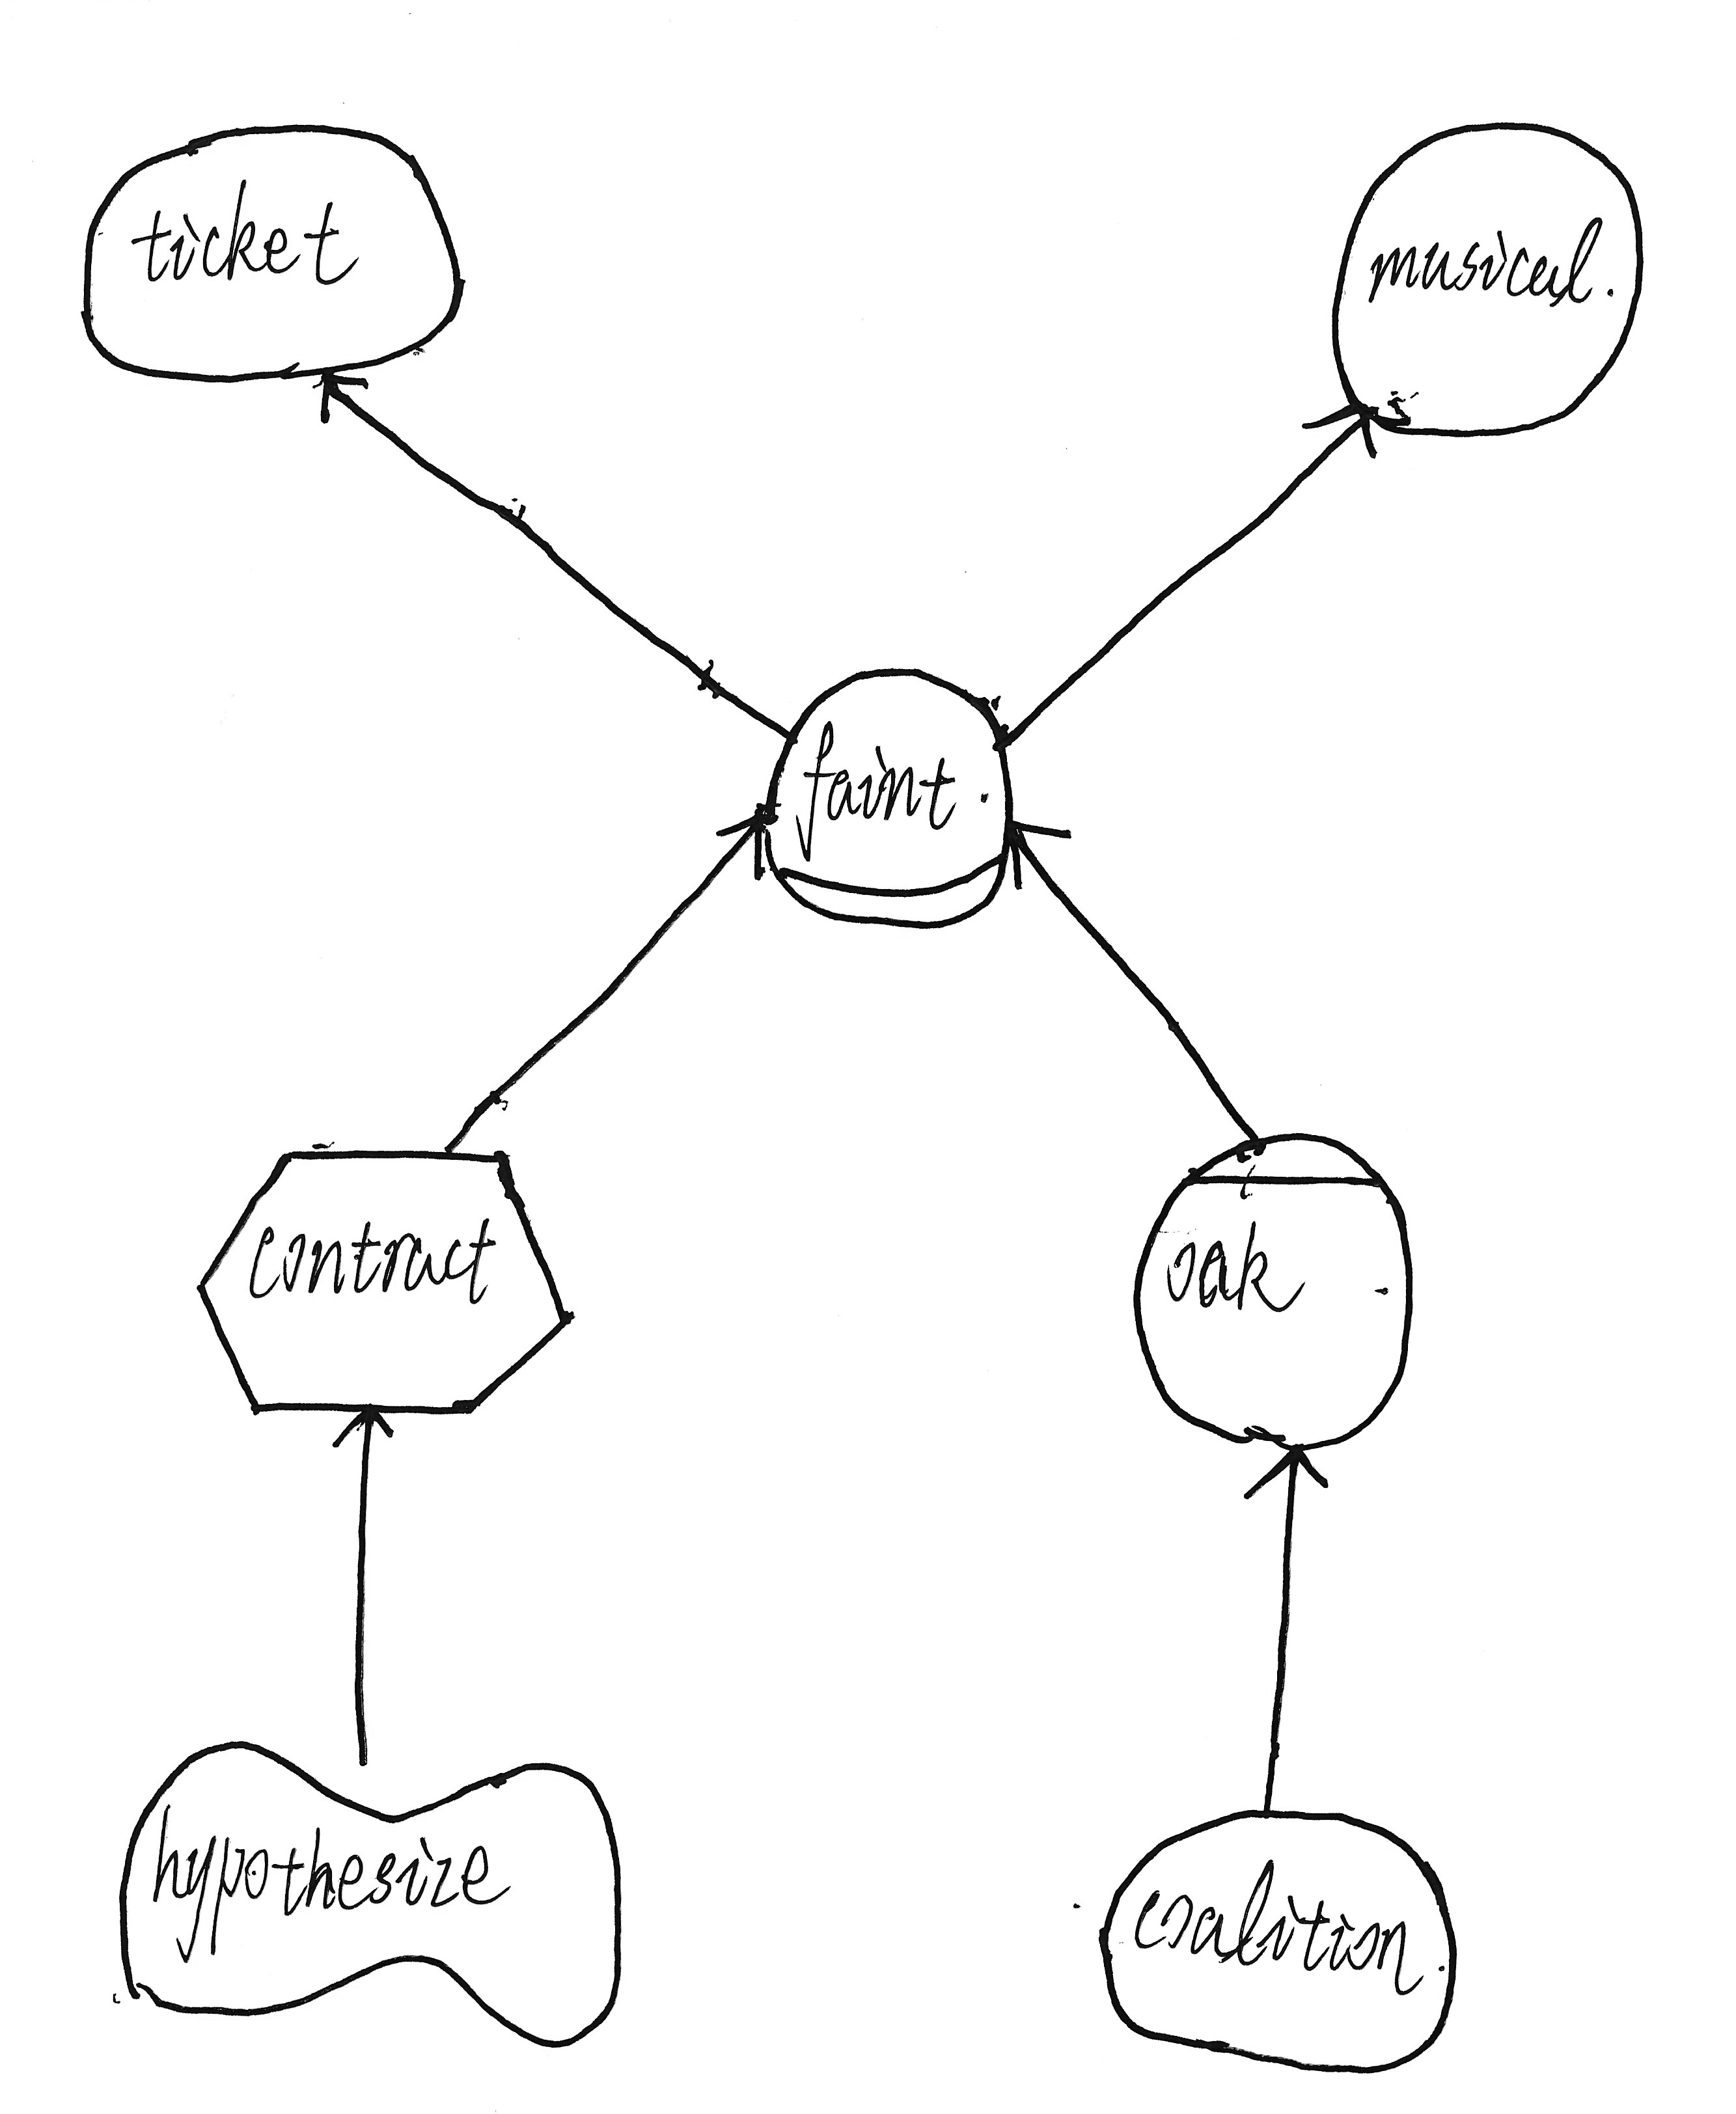 ticket
musical.
faint.
contract
oak
hypothesize
coalition.